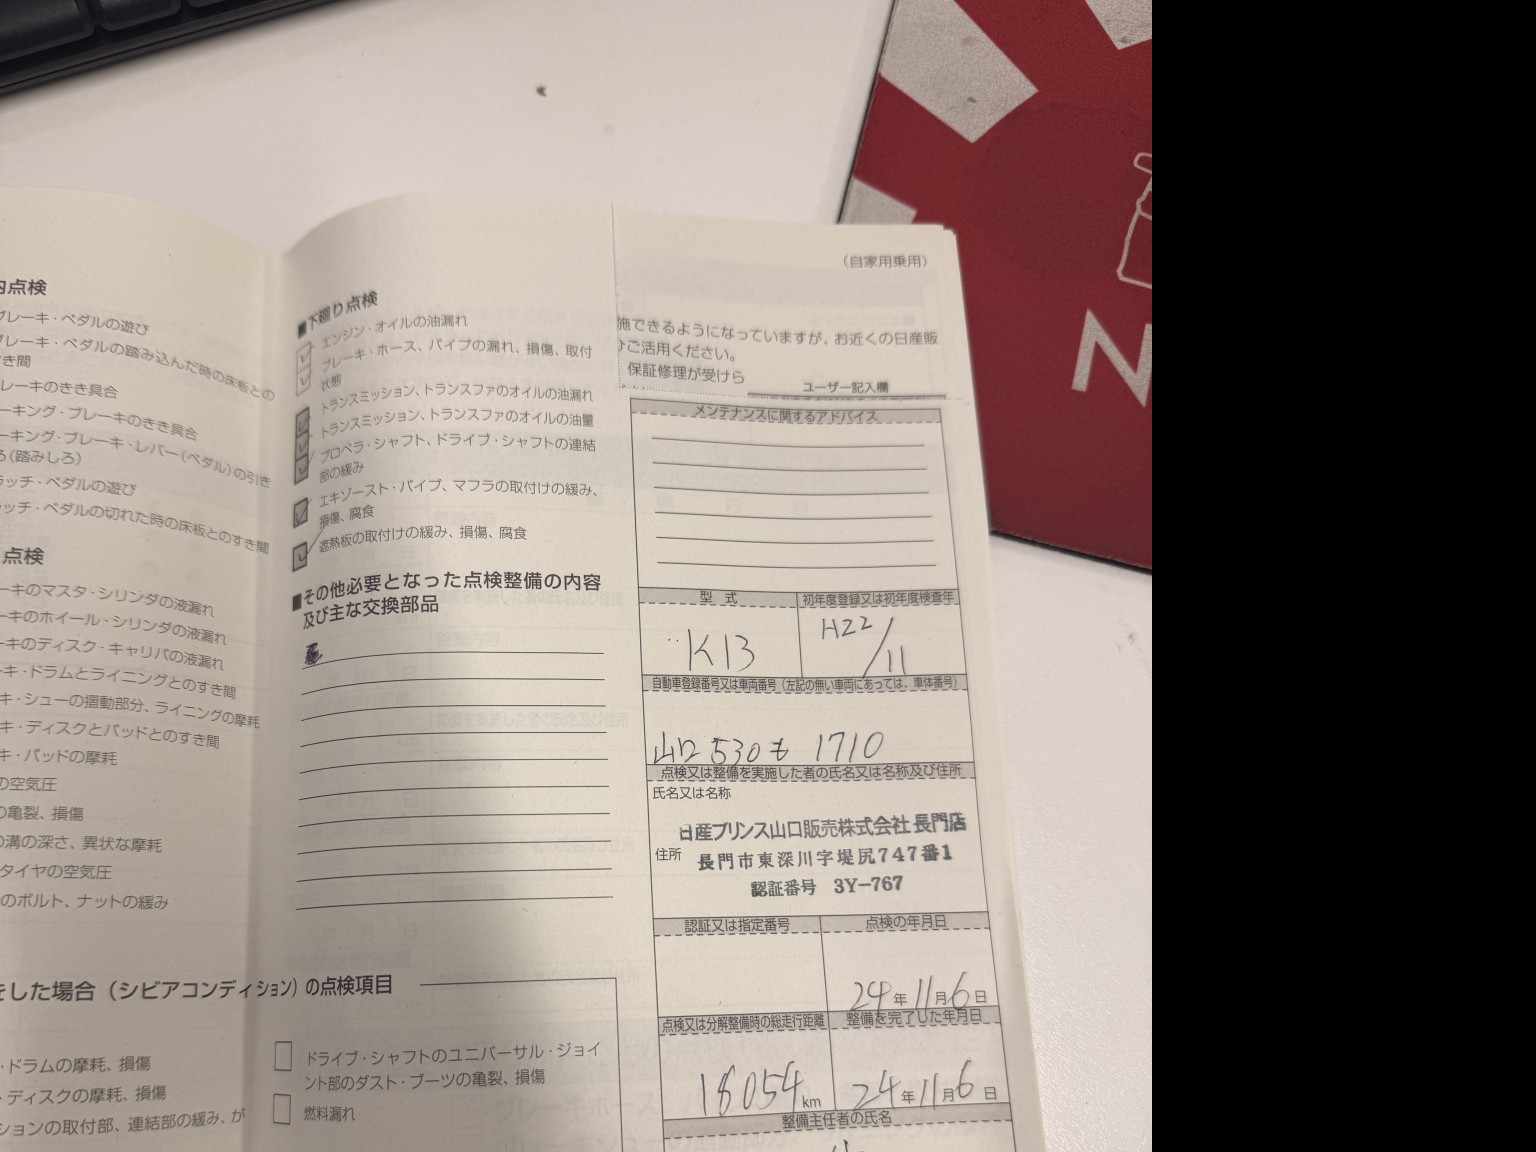 内点検
ブレーキ・ペダルの遊び
ブレーキ・ペダルの踏み込んだ時の床板との
すき間
レーキのきき具合
ーキング・ブレーキのきき具合
ーキング・ブレーキ・レバー(ペダル)の引き
ろ(踏みしろ)
ラッチ・ペダルの遊び
ラッチ・ペダルの切れた時の床板とのすき間
点検
ーキのマスタ・シリンダの液漏れ
ーキのホイール・シリンダの液漏れ
ーキのディスク・キャリパの液漏れ
ーキ・ドラムとライニングとのすき間
キ・シューの摺動部分、ライニングの摩耗
キ・ディスクとパッドとのすき間
キ・パッドの摩耗
の空気圧
の亀裂、損傷
の溝の深さ、異状な摩耗
タイヤの空気圧
のボルト、ナットの緩み
■下廻り点検
エンジン・オイルの油漏れ
ブレーキ・ホース、パイプの漏れ、損傷、取付
状態
トランスミッション、トランスファのオイルの油漏れ
トランスミッション、トランスファのオイルの油量
プロペラ・シャフト、ドライブ・シャフトの連結
部の緩み
エキゾースト・パイプ、マフラの取付けの緩み、
損傷、腐食
遮熱板の取付けの緩み、損傷、腐食
■その他必要となった点検整備の内容
及び主な交換部品
をした場合(シビアコンディション)の点検項目
・ドラムの摩耗、損傷
・ディスクの摩耗、損傷
ションの取付部、連結部の緩み、が
ドライブ・シャフトのユニバーサル・ジョイ
ント部のダスト・ブーツの亀裂、損傷
燃料漏れ
(自家用乗用)
施できるようになっていますが、お近くの日産販
ひご活用ください。
保証修理が受けら
ユーザー記入欄
メンテナンスに関するアドバイス
型 式
初年度登録又は初年度検査年
K13
H22/11
自動車登録番号又は車両番号(左記の無い車両にあっては、車体番号)
山口 530 も 1710
点検又は整備を実施した者の氏名又は名称及び住所
氏名又は名称
日産プリンス山口販売株式会社 長門店
住所
長門市東深川字堤尻747番1
認証番号 3Y-767
認証又は指定番号
点検の年月日
24年11月6日
点検又は分解整備時の総走行距離
整備を完了した年月日
18054km
24年11月6日
整備主任者の氏名
N